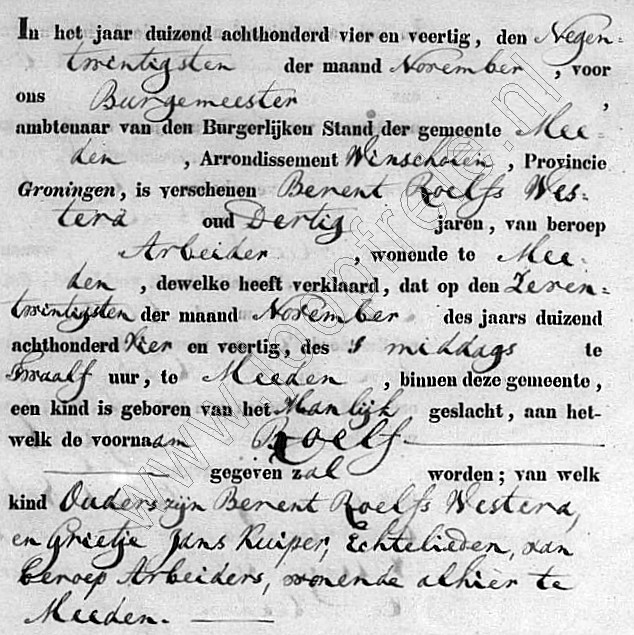 In het jaar duizend achthonderd vier en veertig, den Negen-
twintigsten der maand November, voor
ons Burgemeester,
ambtenaar van den Burgerlijken Stand der gemeente Mee-
den, Arrondissement Winschoten, Provincie
Groningen, is verschenen Berent Roelfs Wes-
tera oud Dertig jaren, van beroep
Arbeider, wonende te Mee-
den, dewelke heeft verklaard, dat op den Zeven-
twintigsten der maand November des jaars duizend
achthonderd Vier en veertig, des s middags te
Twaalf uur, te Meeden, binnen deze gemeente,
een kind is geboren van het Manlijk geslacht, aan het-
welk de voornaam Roelf
gegeven zal worden; van welk
kind Ouders zijn Berent Roelfs Westera,
en Grietje Jans Kuiper, Echtelieden, van
beroep Arbeiders, wonende alhier te
Meeden.